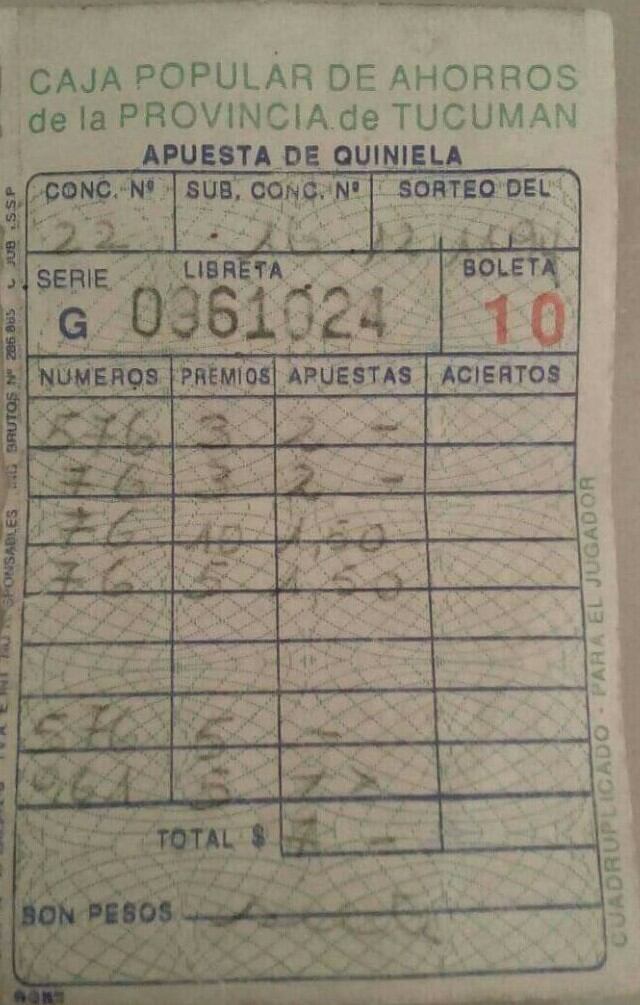 CAJA POPULAR DE AHORROS
de la PROVINCIA de TUCUMAN
APUESTA DE QUINIELA
CONC. Nº SUB. CONC. Nº SORTEO DEL
22 16 12
SERIE LIBRETA BOLETA
G 0361024 10
NUMEROS PREMIOS APUESTAS ACIERTOS
576 3 2 -
76 3 2 -
76 10 1,50
76 5 1,50
576 5 -
5
TOTAL $ 7 -
SON PESOS
CUADRUPLICADO - PARA EL JUGADOR
RESPONSABLES ING BRUTOS Nº 286.865